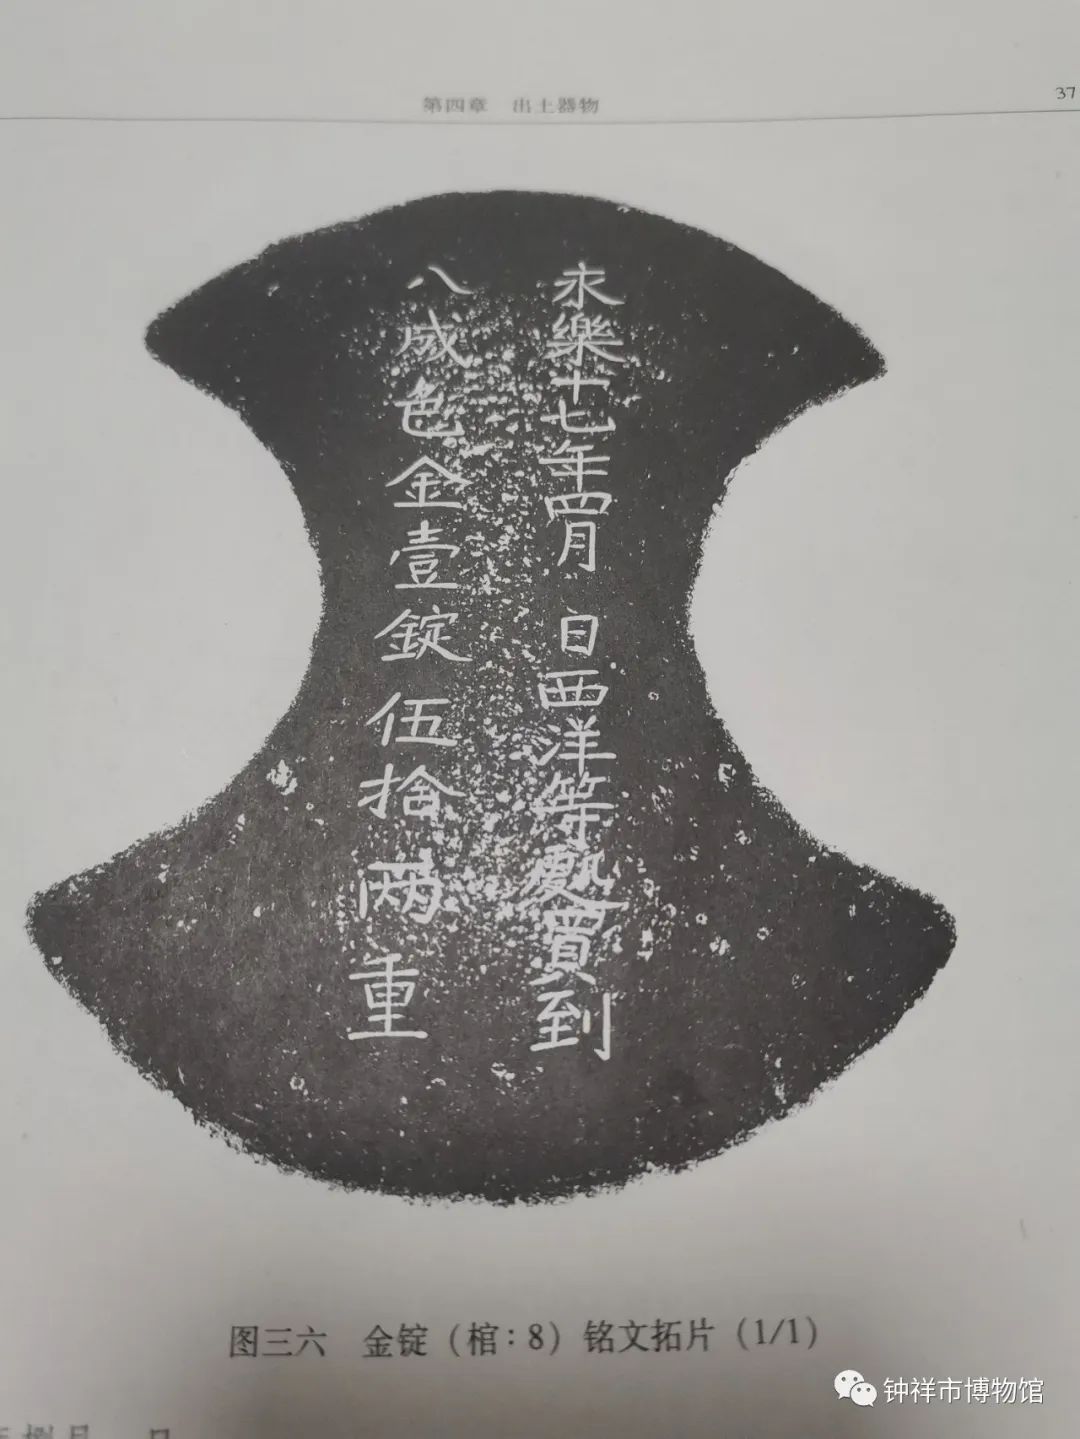 第四章　出土器物
37
永樂十七年四月　日西洋等處買到
八成色金壹錠伍拾兩重
图三六　金锭（棺：8）铭文拓片（1/1）
钟祥市博物馆